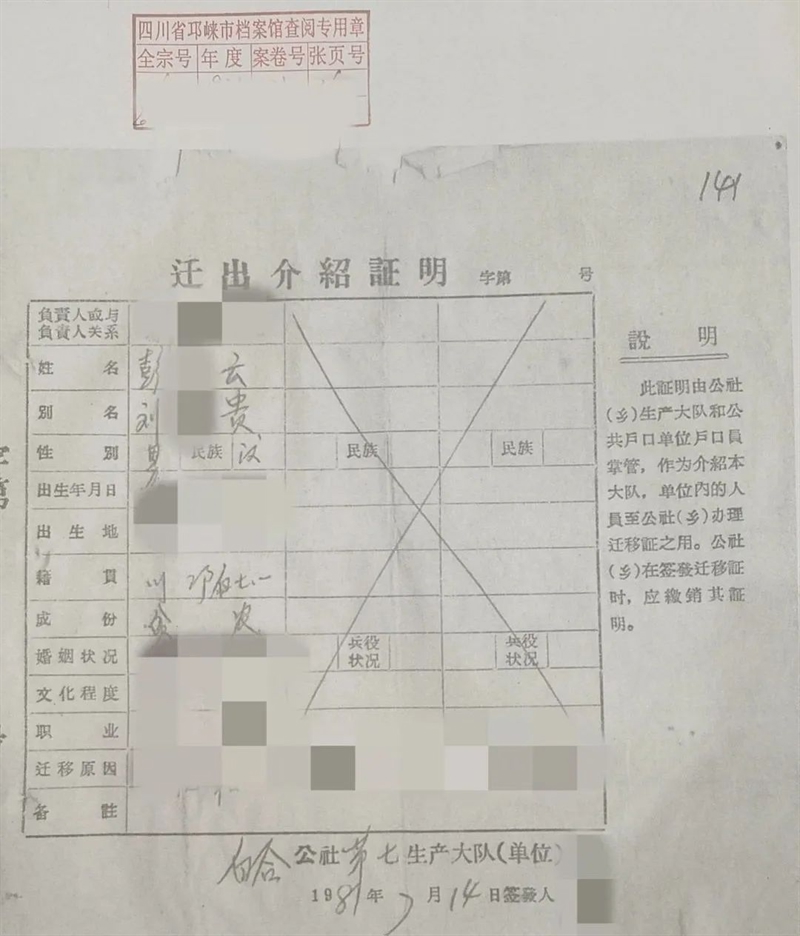 四川省邛崃市档案馆查阅专用章
全宗号 年度 案卷号 张页号
141
迁出介紹証明 字第 号
負責人或与
負責人关系
姓名 彭 云
別名 刘 贵
性別 男 民族 汉 民族 民族
出生年月日
出生地
籍貫 川 邛
成份 农
婚姻状况 兵役状况 兵役状况
文化程度
职业
迁移原因
备註
公社第七生产大队(单位)
1981年7月14日签發人
說明
此証明由公社
(乡)生产大队和公
共戶口单位戶口員
掌管，作为介紹本
大队，单位内的人
員至公社(乡)办理
迁移証之用。公社
(乡)在签發迁移証
时，应繳銷其証
明。